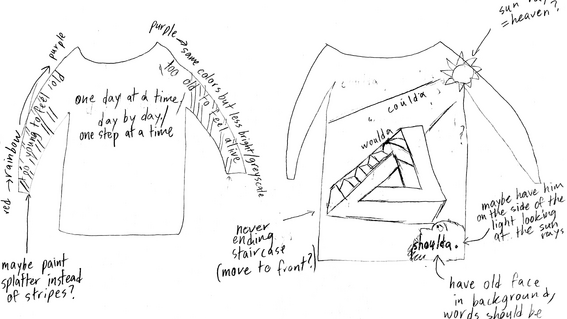 purple
rainbow
red
too young to feel old
one day at a time,
day by day,
one step at a time
purple → same colors but less bright/greyscale
too old to feel alive
maybe paint
splatter instead
of stripes?
sun
=heaven?
coulda
woulda
shoulda.
never
ending
staircase
(move to front?)
maybe have him
on the side of the
light looking
at the sun
rays
have old face
in background,
words should be